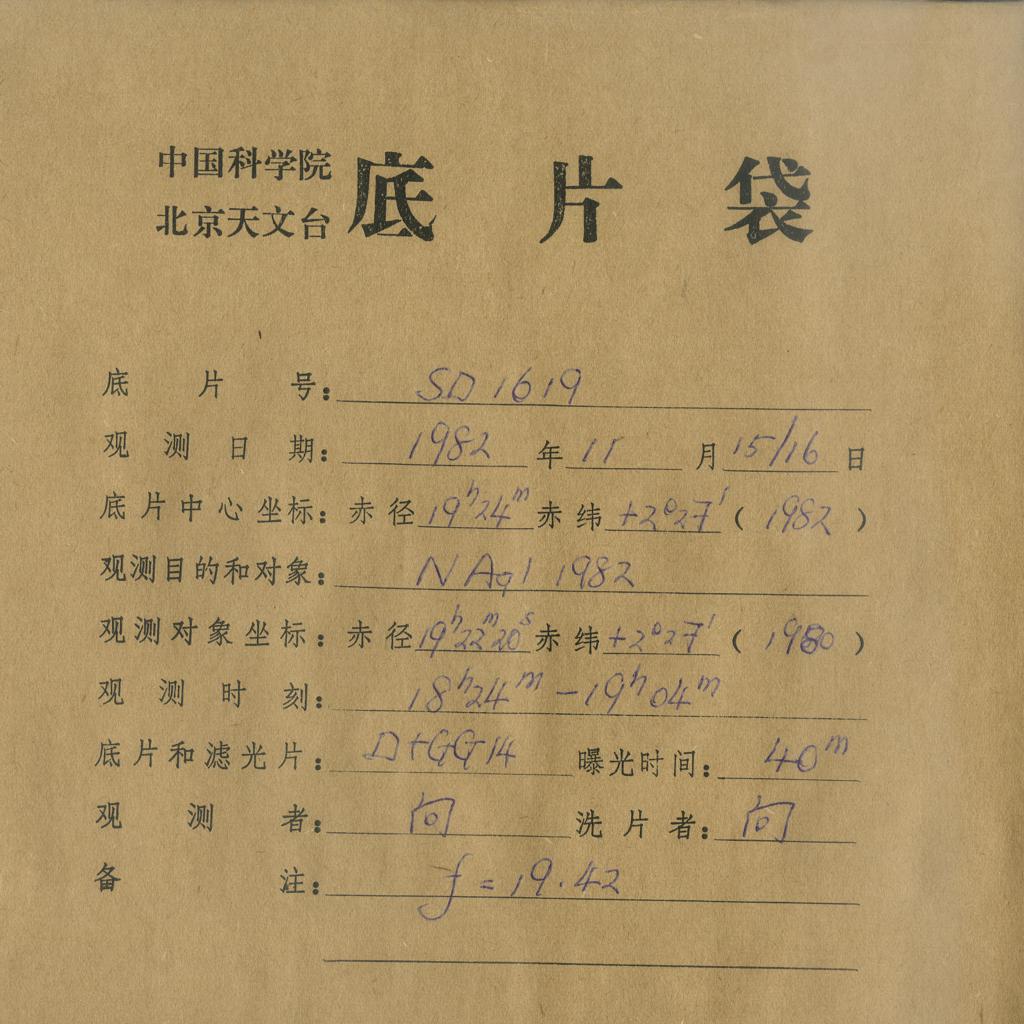 中国科学院
北京天文台
底片袋
底片号： SD 1619
观测日期： 1982 年 11 月 15/16 日
底片中心坐标：赤径 19ʰ24ᵐ 赤纬 +2°27′ ( 1982 )
观测目的和对象： N Aql 1982
观测对象坐标：赤径 19ʰ22ᵐ20ˢ 赤纬 +2°27′ ( 1980 )
观测时刻： 18ʰ24ᵐ - 19ʰ04ᵐ
底片和滤光片： D+GG14 曝光时间： 40ᵐ
观测者： 向 洗片者： 向
备注： f = 19.42